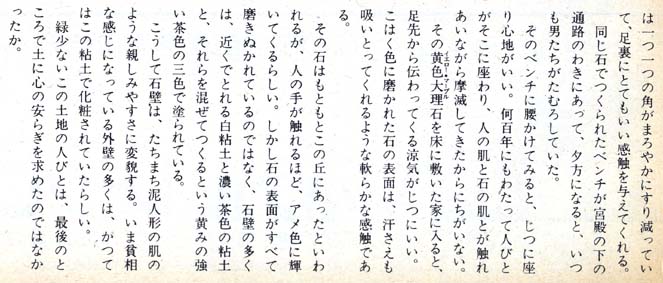 は一つ一つの角がまろやかにすり減ってい
て、足裏にとてもいい感触を与えてくれる。
同じ石でつくられたベンチが宮殿の下の
通路のわきにあって、夕方になると、いつ
も男たちがたむろしていた。
そのベンチに腰かけてみると、じつに座
り心地がいい。何百年にもわたって人びと
がそこに座わり、人の肌と石の肌とが触れ
あいながら摩滅してきたからにちがいない。
その黄色大理石を床に敷いた家に入ると、
足先から伝わってくる涼気がじつにいい。
こはく色に磨かれた石の表面は、汗さえも
吸いとってくれるような軟らかな感触であ
る。
その石はもともとこの丘にあったといわ
れるが、人の手が触れるほど、アメ色に輝
いてくるらしい。しかし石の表面がすべて
磨きぬかれているのではなく、石壁の多く
は、近くでとれる白粘土と濃い茶色の粘土
と、それらを混ぜてつくるという黄みの強
い茶色の三色で塗られている。
こうして石壁は、たちまち泥人形の肌の
ような親しみやすさに変貌する。いま貧相
な感じになっている外壁の多くは、かつて
はこの粘土で化粧されていたらしい。
緑少ないこの土地の人びとは、最後のと
ころで土に心の安らぎを求めたのではなか
ったか。